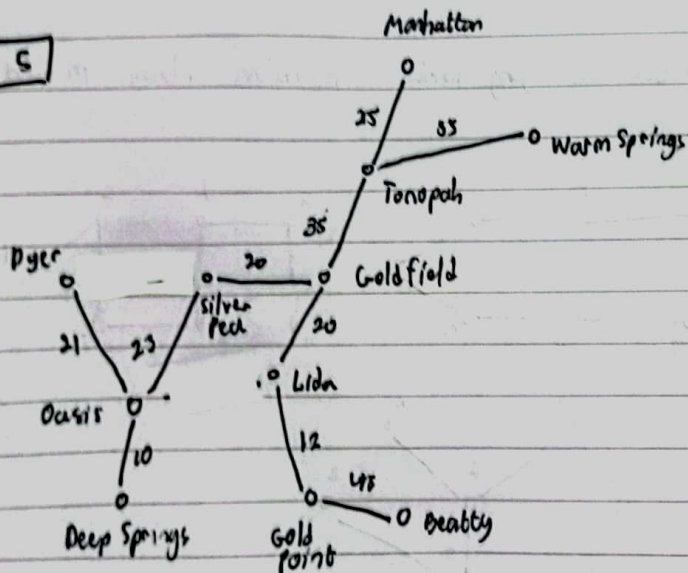 5
Manhattan
25
55
Warm Springs
Tonopah
35
Dyer
20
Goldfield
Silver
Peak
21
23
20
Lida
Oasis
10
12
45
Deep Springs
Gold
Point
Beatty